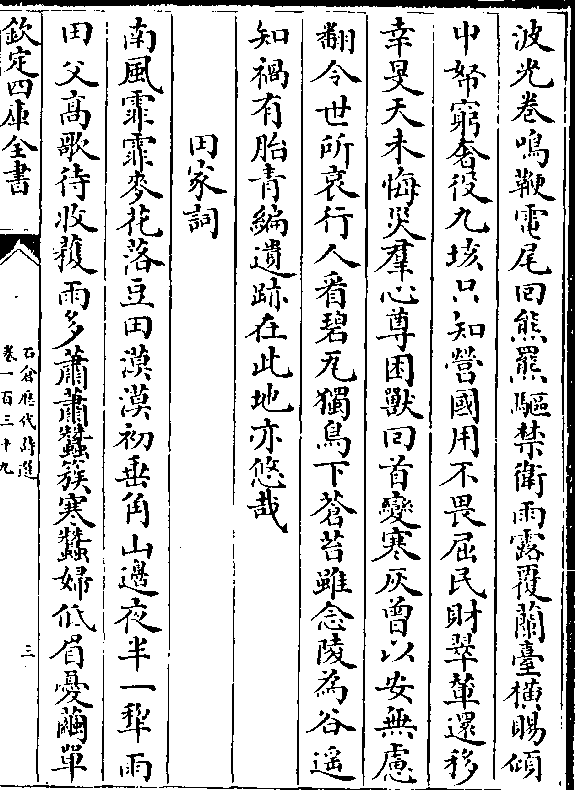 波光卷鳴鞭電尾回熊羆驅禁衛雨露覆蘭臺橫賜傾
中帑窮奢役九垓只知營國用不畏屈民財翠輦還移
幸旻天未悔災羣心尊困獸回首變寒灰曾以安無慮
翻令世所哀行人看碧瓦獨鳥下蒼苔雖念陵為谷遥
知禍有胎青編遺跡在此地亦悠哉
田家詞
南風霏霏麥花落豆田漠漠初垂角山邊夜半一犂雨
田父高歌待收穫雨多蕭蕭蠶簇寒蠶婦低眉憂繭單
欽定四庫全書
石倉歴代詩選
卷一百三十九
三